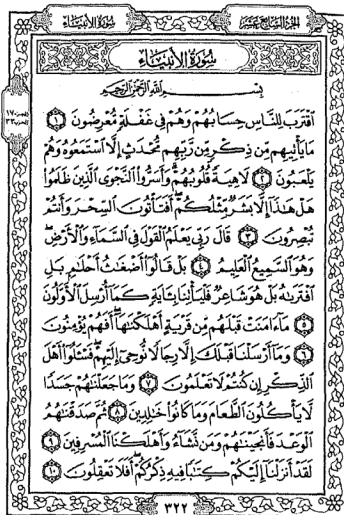 سُورَةُ الأَنبِيَاءِ
الجُزءُ السَّابِعَ عَشَرَ
سُورَةُ الأَنبِيَاءِ
بِسْمِ اللَّهِ الرَّحْمَٰنِ الرَّحِيمِ
ٱقْتَرَبَ لِلنَّاسِ حِسَابُهُمْ وَهُمْ فِى غَفْلَةٍ مُّعْرِضُونَ ١
مَا يَأْتِيهِم مِّن ذِكْرٍ مِّن رَّبِّهِم مُّحْدَثٍ إِلَّا ٱسْتَمَعُوهُ وَهُمْ
يَلْعَبُونَ ٢ لَاهِيَةً قُلُوبُهُمْ وَأَسَرُّوا۟ ٱلنَّجْوَى ٱلَّذِينَ ظَلَمُوا۟
هَلْ هَٰذَآ إِلَّا بَشَرٌ مِّثْلُكُمْ أَفَتَأْتُونَ ٱلسِّحْرَ وَأَنتُمْ
تُبْصِرُونَ ٣ قَالَ رَبِّى يَعْلَمُ ٱلْقَوْلَ فِى ٱلسَّمَآءِ وَٱلْأَرْضِ
وَهُوَ ٱلسَّمِيعُ ٱلْعَلِيمُ ٤ بَلْ قَالُوٓا۟ أَضْغَٰثُ أَحْلَٰمٍ بَلِ
ٱفْتَرَىٰهُ بَلْ هُوَ شَاعِرٌ فَلْيَأْتِنَا بِـَٔايَةٍ كَمَآ أُرْسِلَ ٱلْأَوَّلُونَ
٥ مَآ ءَامَنَتْ قَبْلَهُم مِّن قَرْيَةٍ أَهْلَكْنَٰهَآ أَفَهُمْ يُؤْمِنُونَ
٦ وَمَآ أَرْسَلْنَا قَبْلَكَ إِلَّا رِجَالًا نُّوحِىٓ إِلَيْهِمْ فَسْـَٔلُوٓا۟ أَهْلَ
ٱلذِّكْرِ إِن كُنتُمْ لَا تَعْلَمُونَ ٧ وَمَا جَعَلْنَٰهُمْ جَسَدًا
لَّا يَأْكُلُونَ ٱلطَّعَامَ وَمَا كَانُوا۟ خَٰلِدِينَ ٨ ثُمَّ صَدَقْنَٰهُمُ
ٱلْوَعْدَ فَأَنجَيْنَٰهُمْ وَمَن نَّشَآءُ وَأَهْلَكْنَا ٱلْمُسْرِفِينَ ٩
لَقَدْ أَنزَلْنَآ إِلَيْكُمْ كِتَٰبًا فِيهِ ذِكْرُكُمْ أَفَلَا تَعْقِلُونَ ١٠
٣٢٢